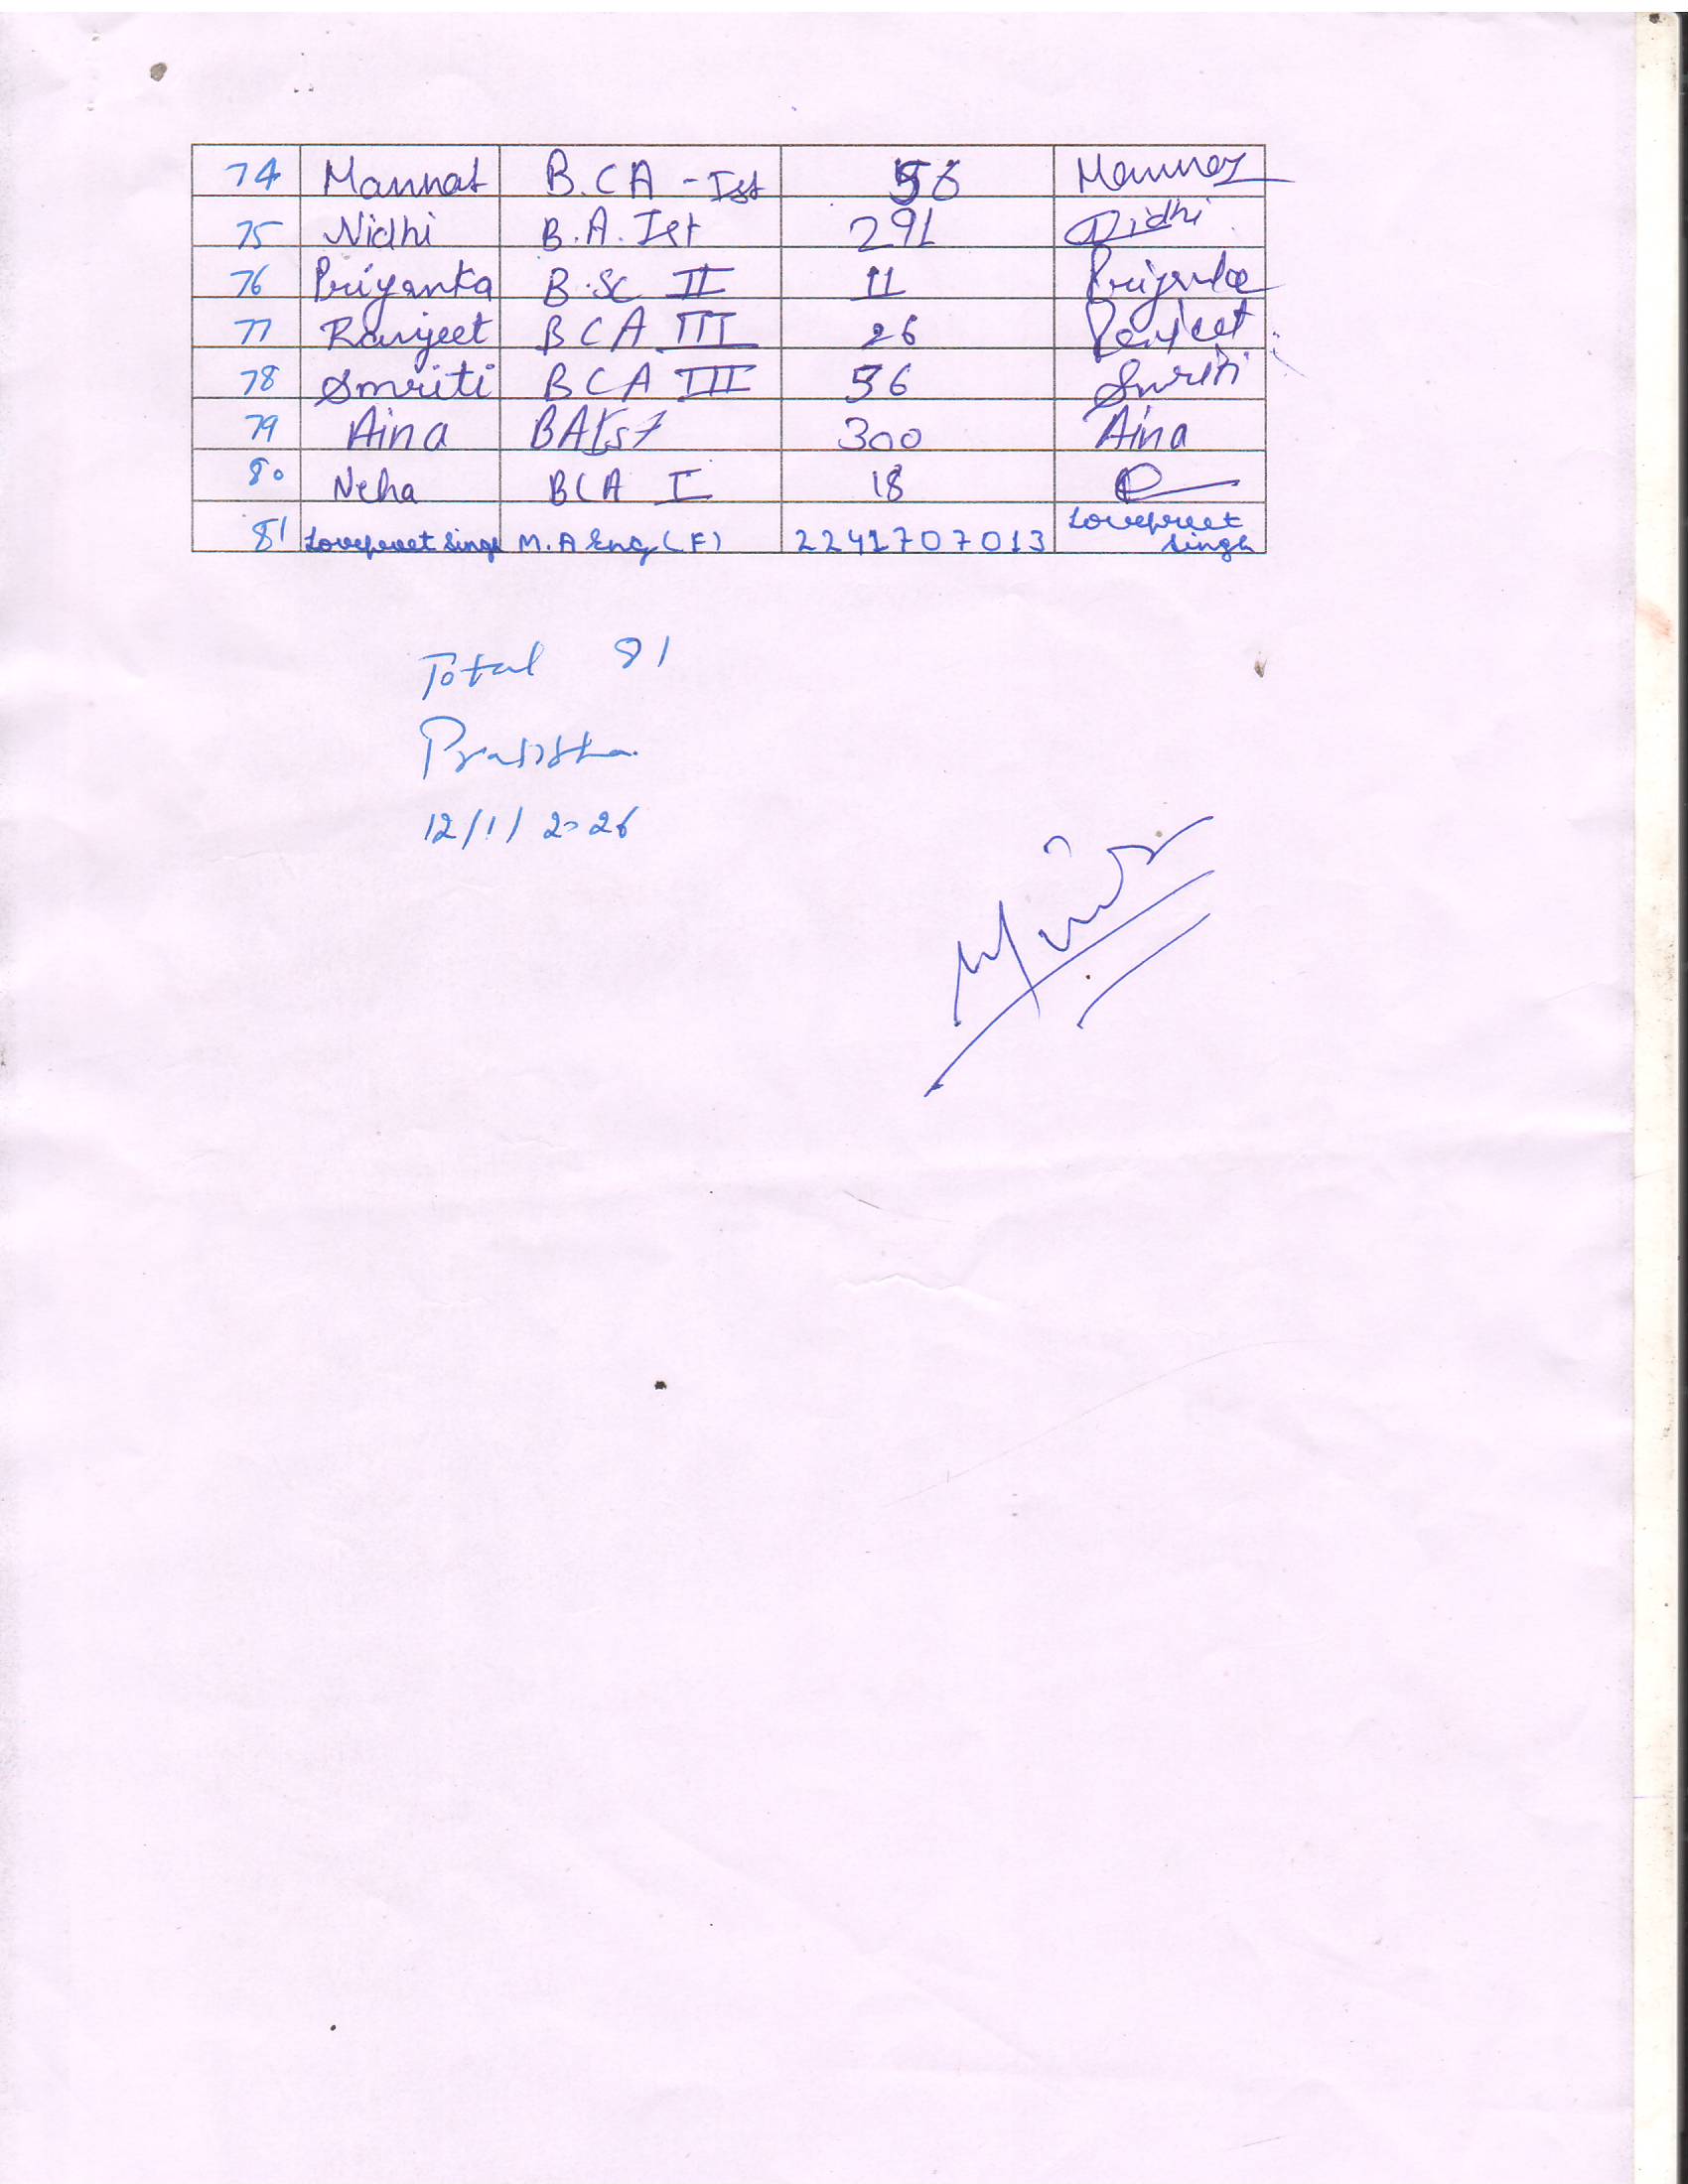 74 Mannat B.CA - Ist 56 Mannat
75 Nidhi B.A. Ist 291 Nidhi
76 Priyanka B.SC II 11 Priyanka
77 Ranjeet BCA III 26 Ranjeet
78 Smriti BCA III 56 Smriti
79 Aina BA Ist 300 Aina
80 Neha BCA I 18
81 Lovepreet Singh M.A Eng (F) 2241707013 Lovepreet Singh
Total 81
12/1/2026